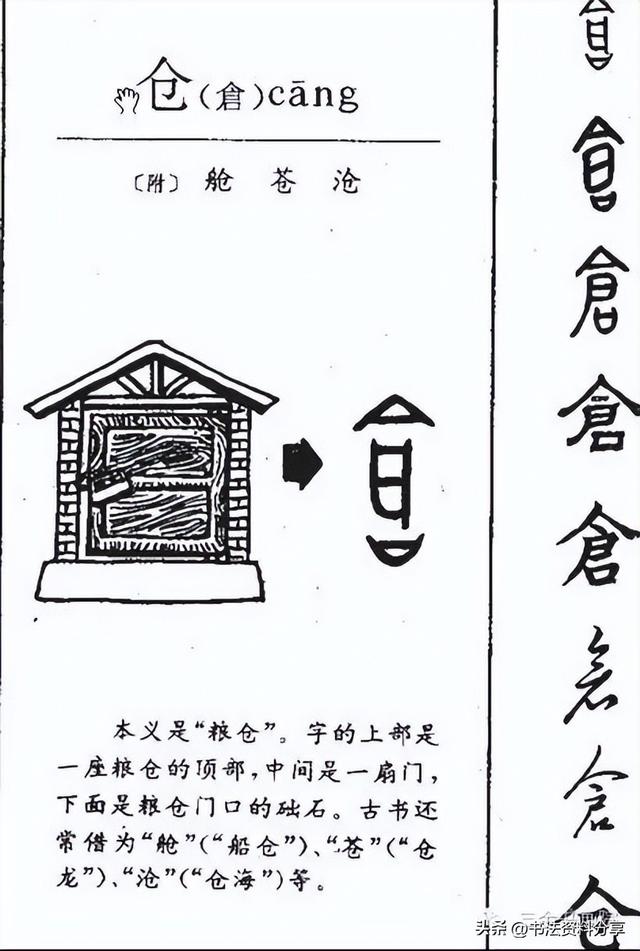 仓(倉)cāng
〔附〕 舱 苍 沧
本义是“粮仓”。字的上部是
一座粮仓的顶部,中间是一扇门,
下面是粮仓门口的础石。古书还
常借为“舱”(“船仓”)、“苍”(“仓
龙”)、“沧”(“仓海”)等。
倉
倉
倉
倉
倉
仓
头条 @书法资料分享